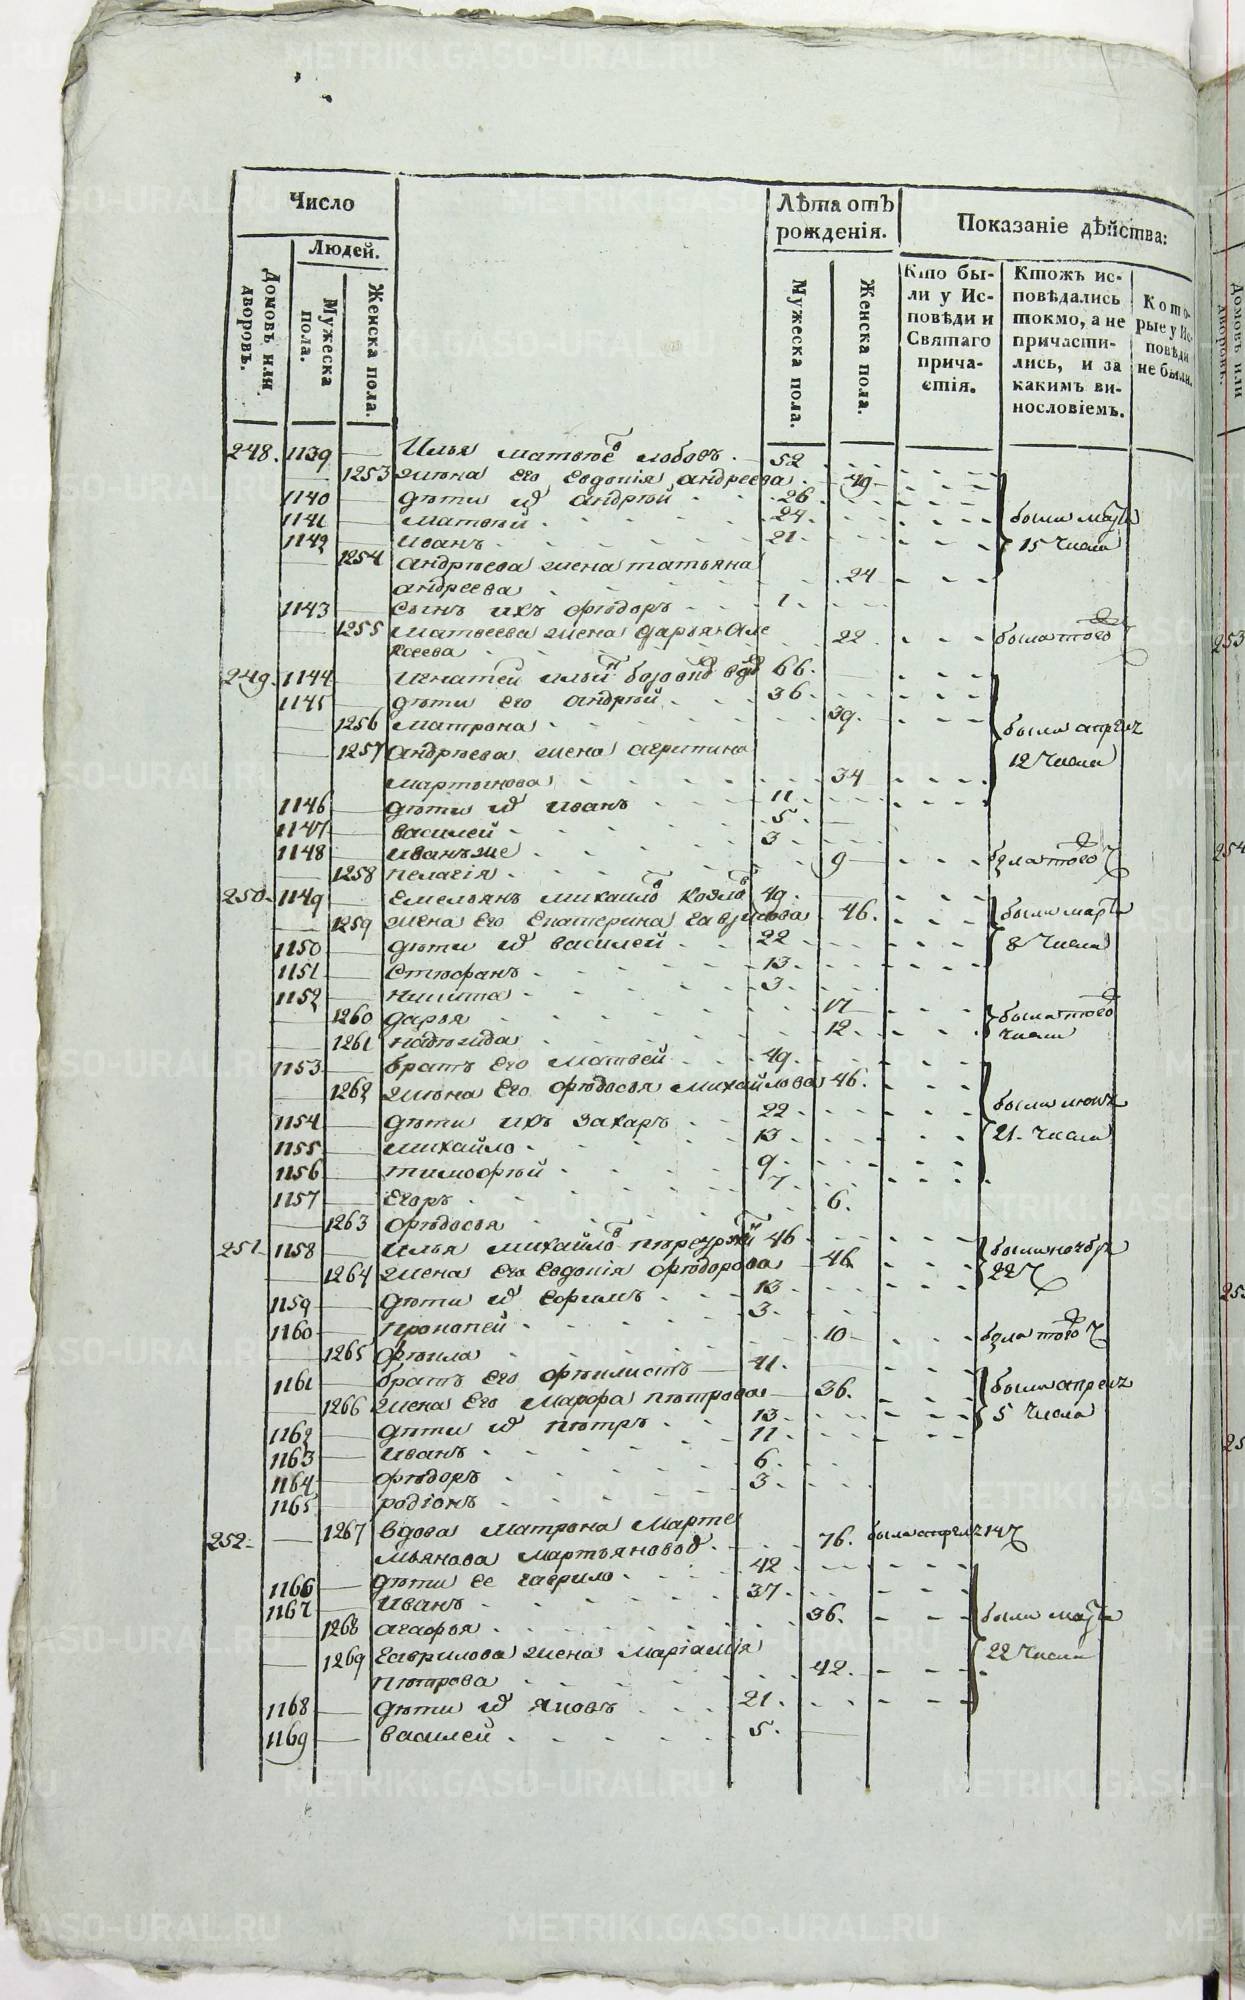 Число
Лѣта отъ рожденія.
Показаніе дѣйства:
Людей.
Домовъ или дворовъ.
Мужеска пола.
Женска пола.
Мужеска пола.
Женска пола.
Кто были у Исповѣди и Святаго причастія.
Ктожъ исповѣдались токмо, а не причастились, и за какимъ винословіемъ.
Которые у Исповѣди не были.
248. 1139 Илья Матвѣев Лобовъ 52
1253 жена его Евдокія Андреева 49
1140 дѣти их Андрѣй 26
1141 Матвѣй 24 были
1142 Иванъ 21 15 числа
1254 Андрѣева жена Татьяна
Андреева 24
1143 сынъ ихъ Фѣдоръ 1
1255 Матвеева жена Дарья Але
ксеева 22 была того ч
249. 1144 Игнатей 66
1145 дѣти его Андрѣй 36
1256 Матрона 39 были апреля
1257 Андрѣева жена Агрипина 12 числа
Мартынова 34
1146 дѣти их Иванъ 11
1147 Василей 5
1148 Иванъ же 3
1258 Пелагія 9 была того ч
250. 1149 Емельянъ Михайлов Козлов 49
1259 жена его Екатерина Гаврилова 46 были марта
1150 дѣти их Василей 22 8 числа
1151 Стѣфанъ 13
1152 Никита 3
1260 Дарья 17 была того
1261 Надѣжда 12 числа
1153 братъ его Матвей 49
1262 жена его Фѣдосья Михайлова 46
1154 дѣти ихъ Захаръ 22 были
1155 Михайло 13 21 числа
1156 Тимофѣй 9
1157 Егоръ 7
1263 Фѣдосья 6
251. 1158 Илья Михайлов 46 были ноября
1264 жена его Евдокія Фѣдорова 46 22 ч
1159 дѣти их Ефимъ 13
1160 Прокопей 3
1265 Фѣкла 10 была того ч
1161 братъ его Фѣлистъ 41 были апреля
1266 жена его Марфа Пѣтрова 36 5 числа
1162 дѣти их Пѣтръ 13
1163 Иванъ 11
1164 Фѣдоръ 6
1165 Родіонъ 3
252. 1267 вдова Матрона Марте
мьянова 76 была апреля 14 ч
1166 дѣти ее Гаврило 42
1167 Иванъ 37
1268 Агафья 36 были
1269 Гаврилова жена Маріамія 22 числа
Пѣтрова 42
1168 дѣти их Яковъ 21
1169 Василей 5
253
254
Домовъ или дворовъ.
METRIKI.GASO-URAL.RU